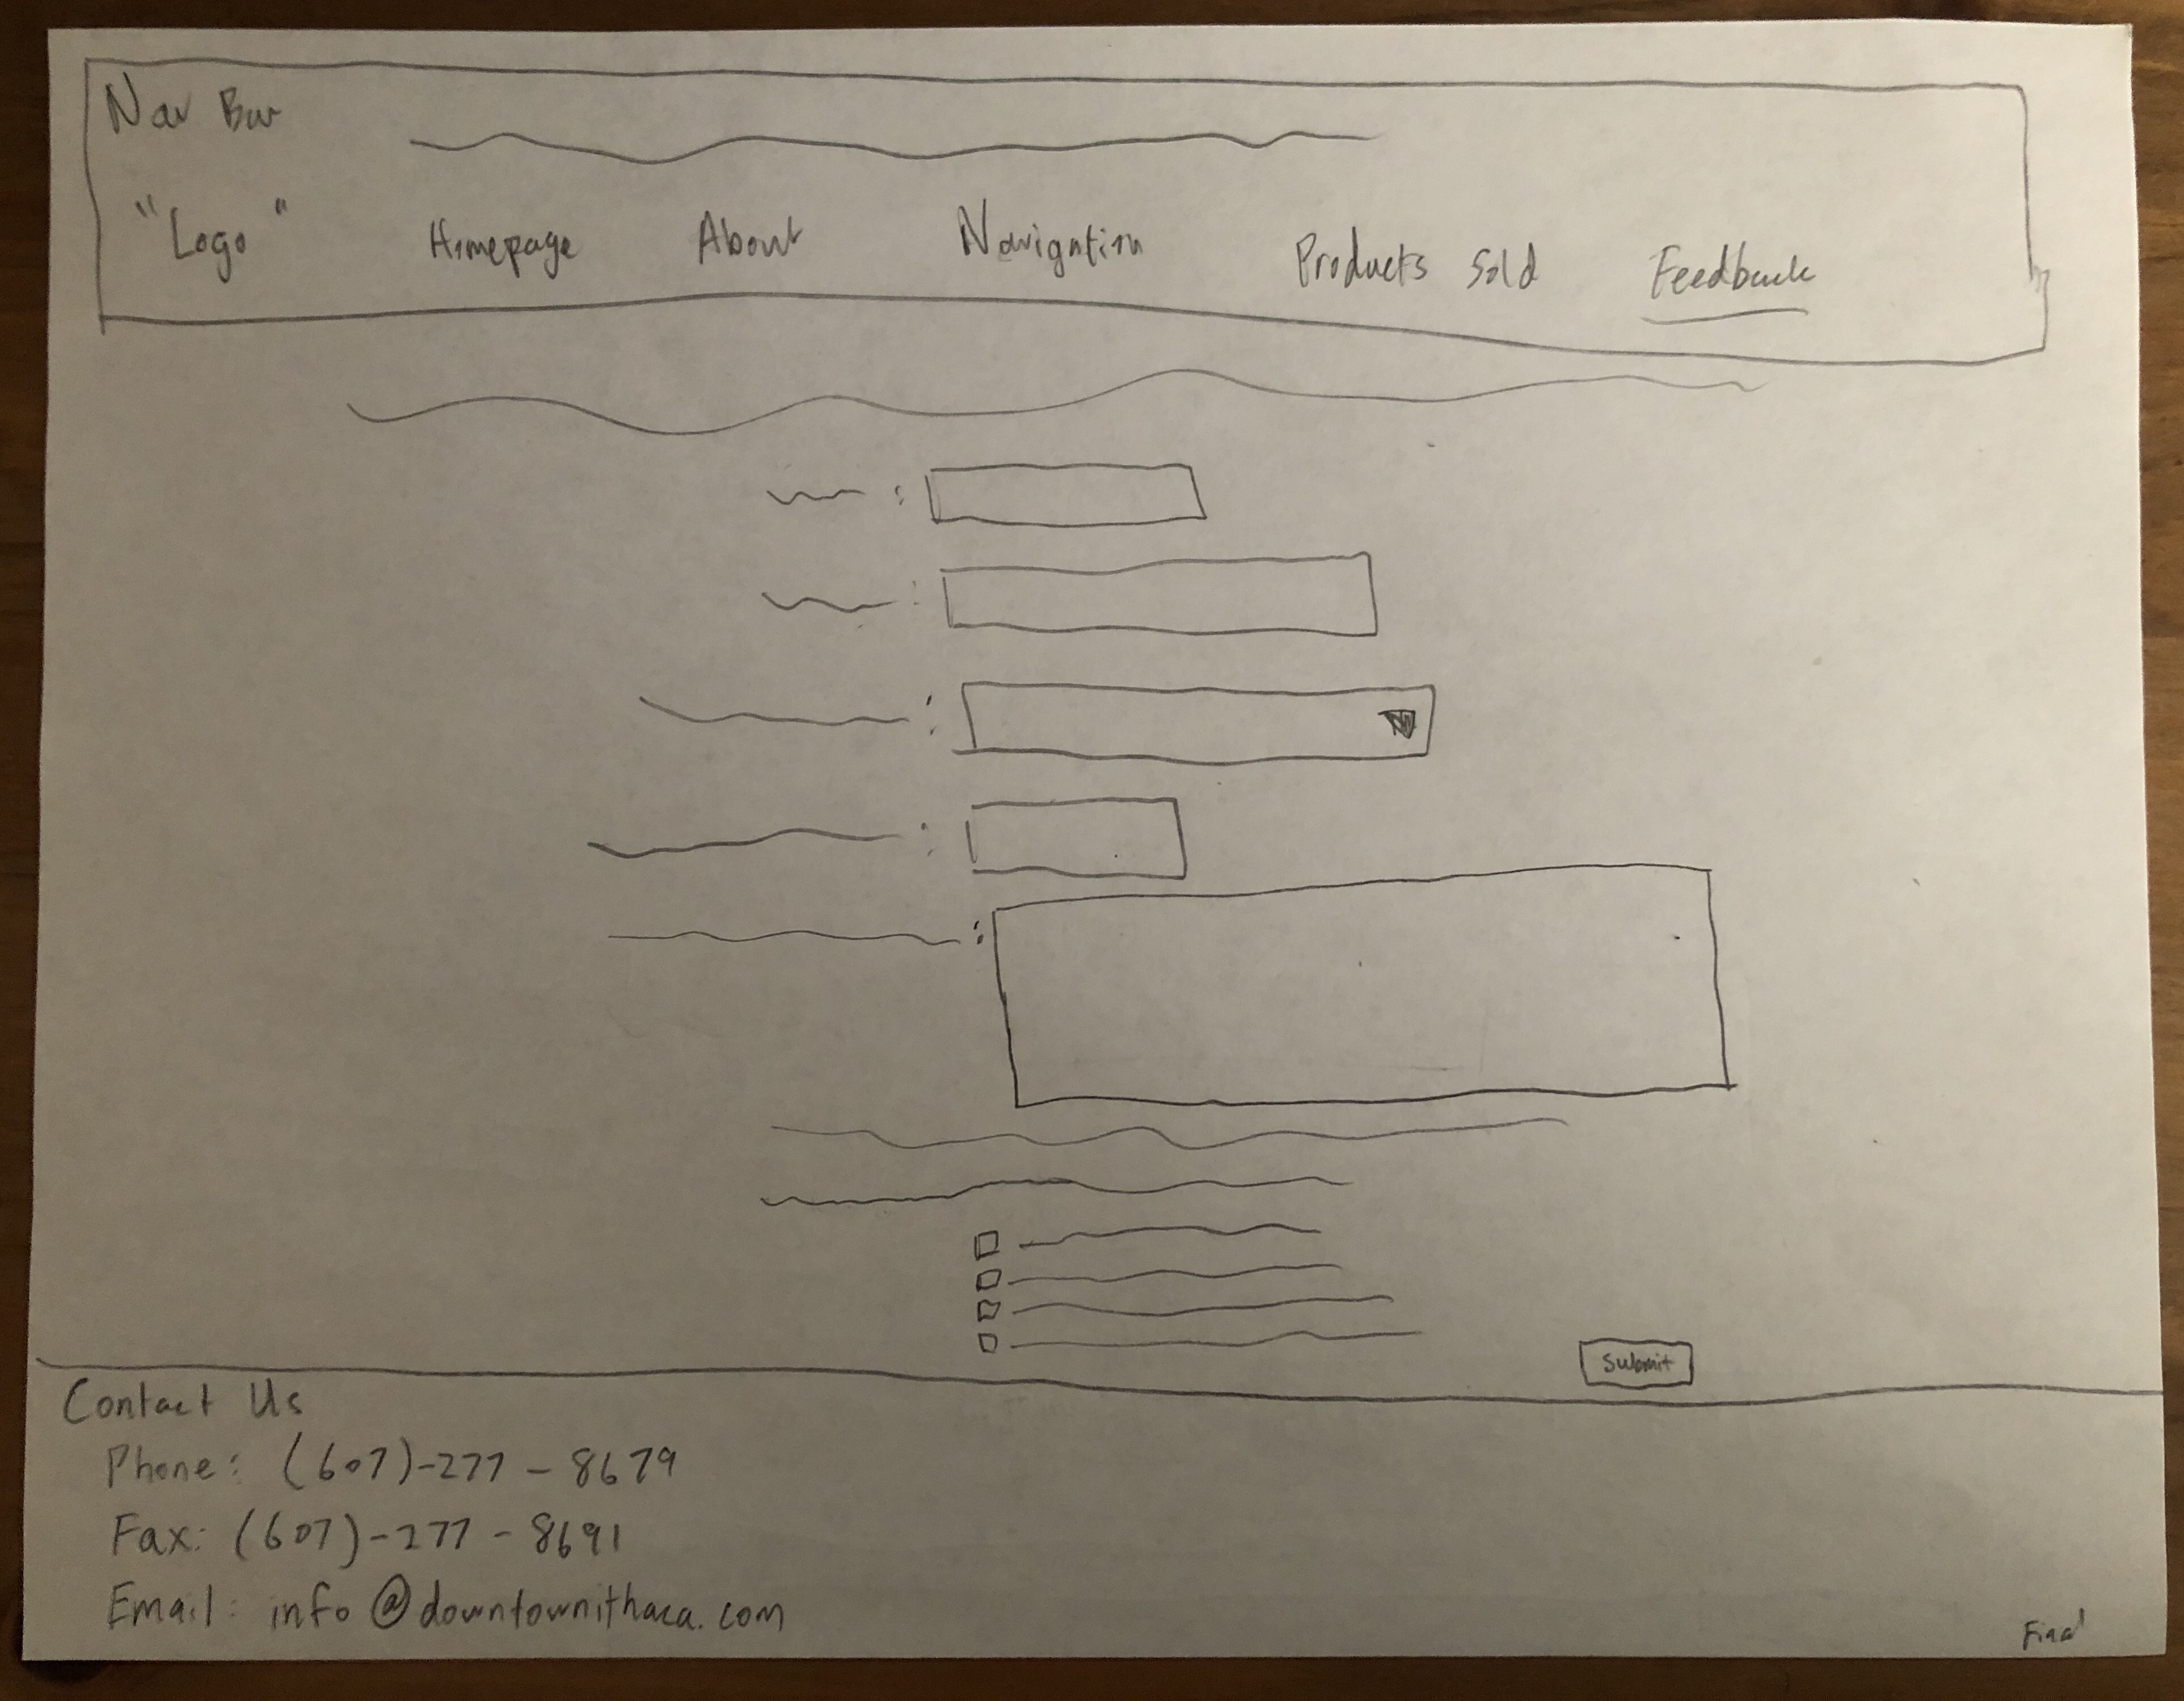 Nav Bar
"Logo" Homepage About Navigation Products Sold Feedback
Submit
Contact Us
Phone: (607)-277-8679
Fax: (607)-277-8691
Email: info@downtownithaca.com
Final